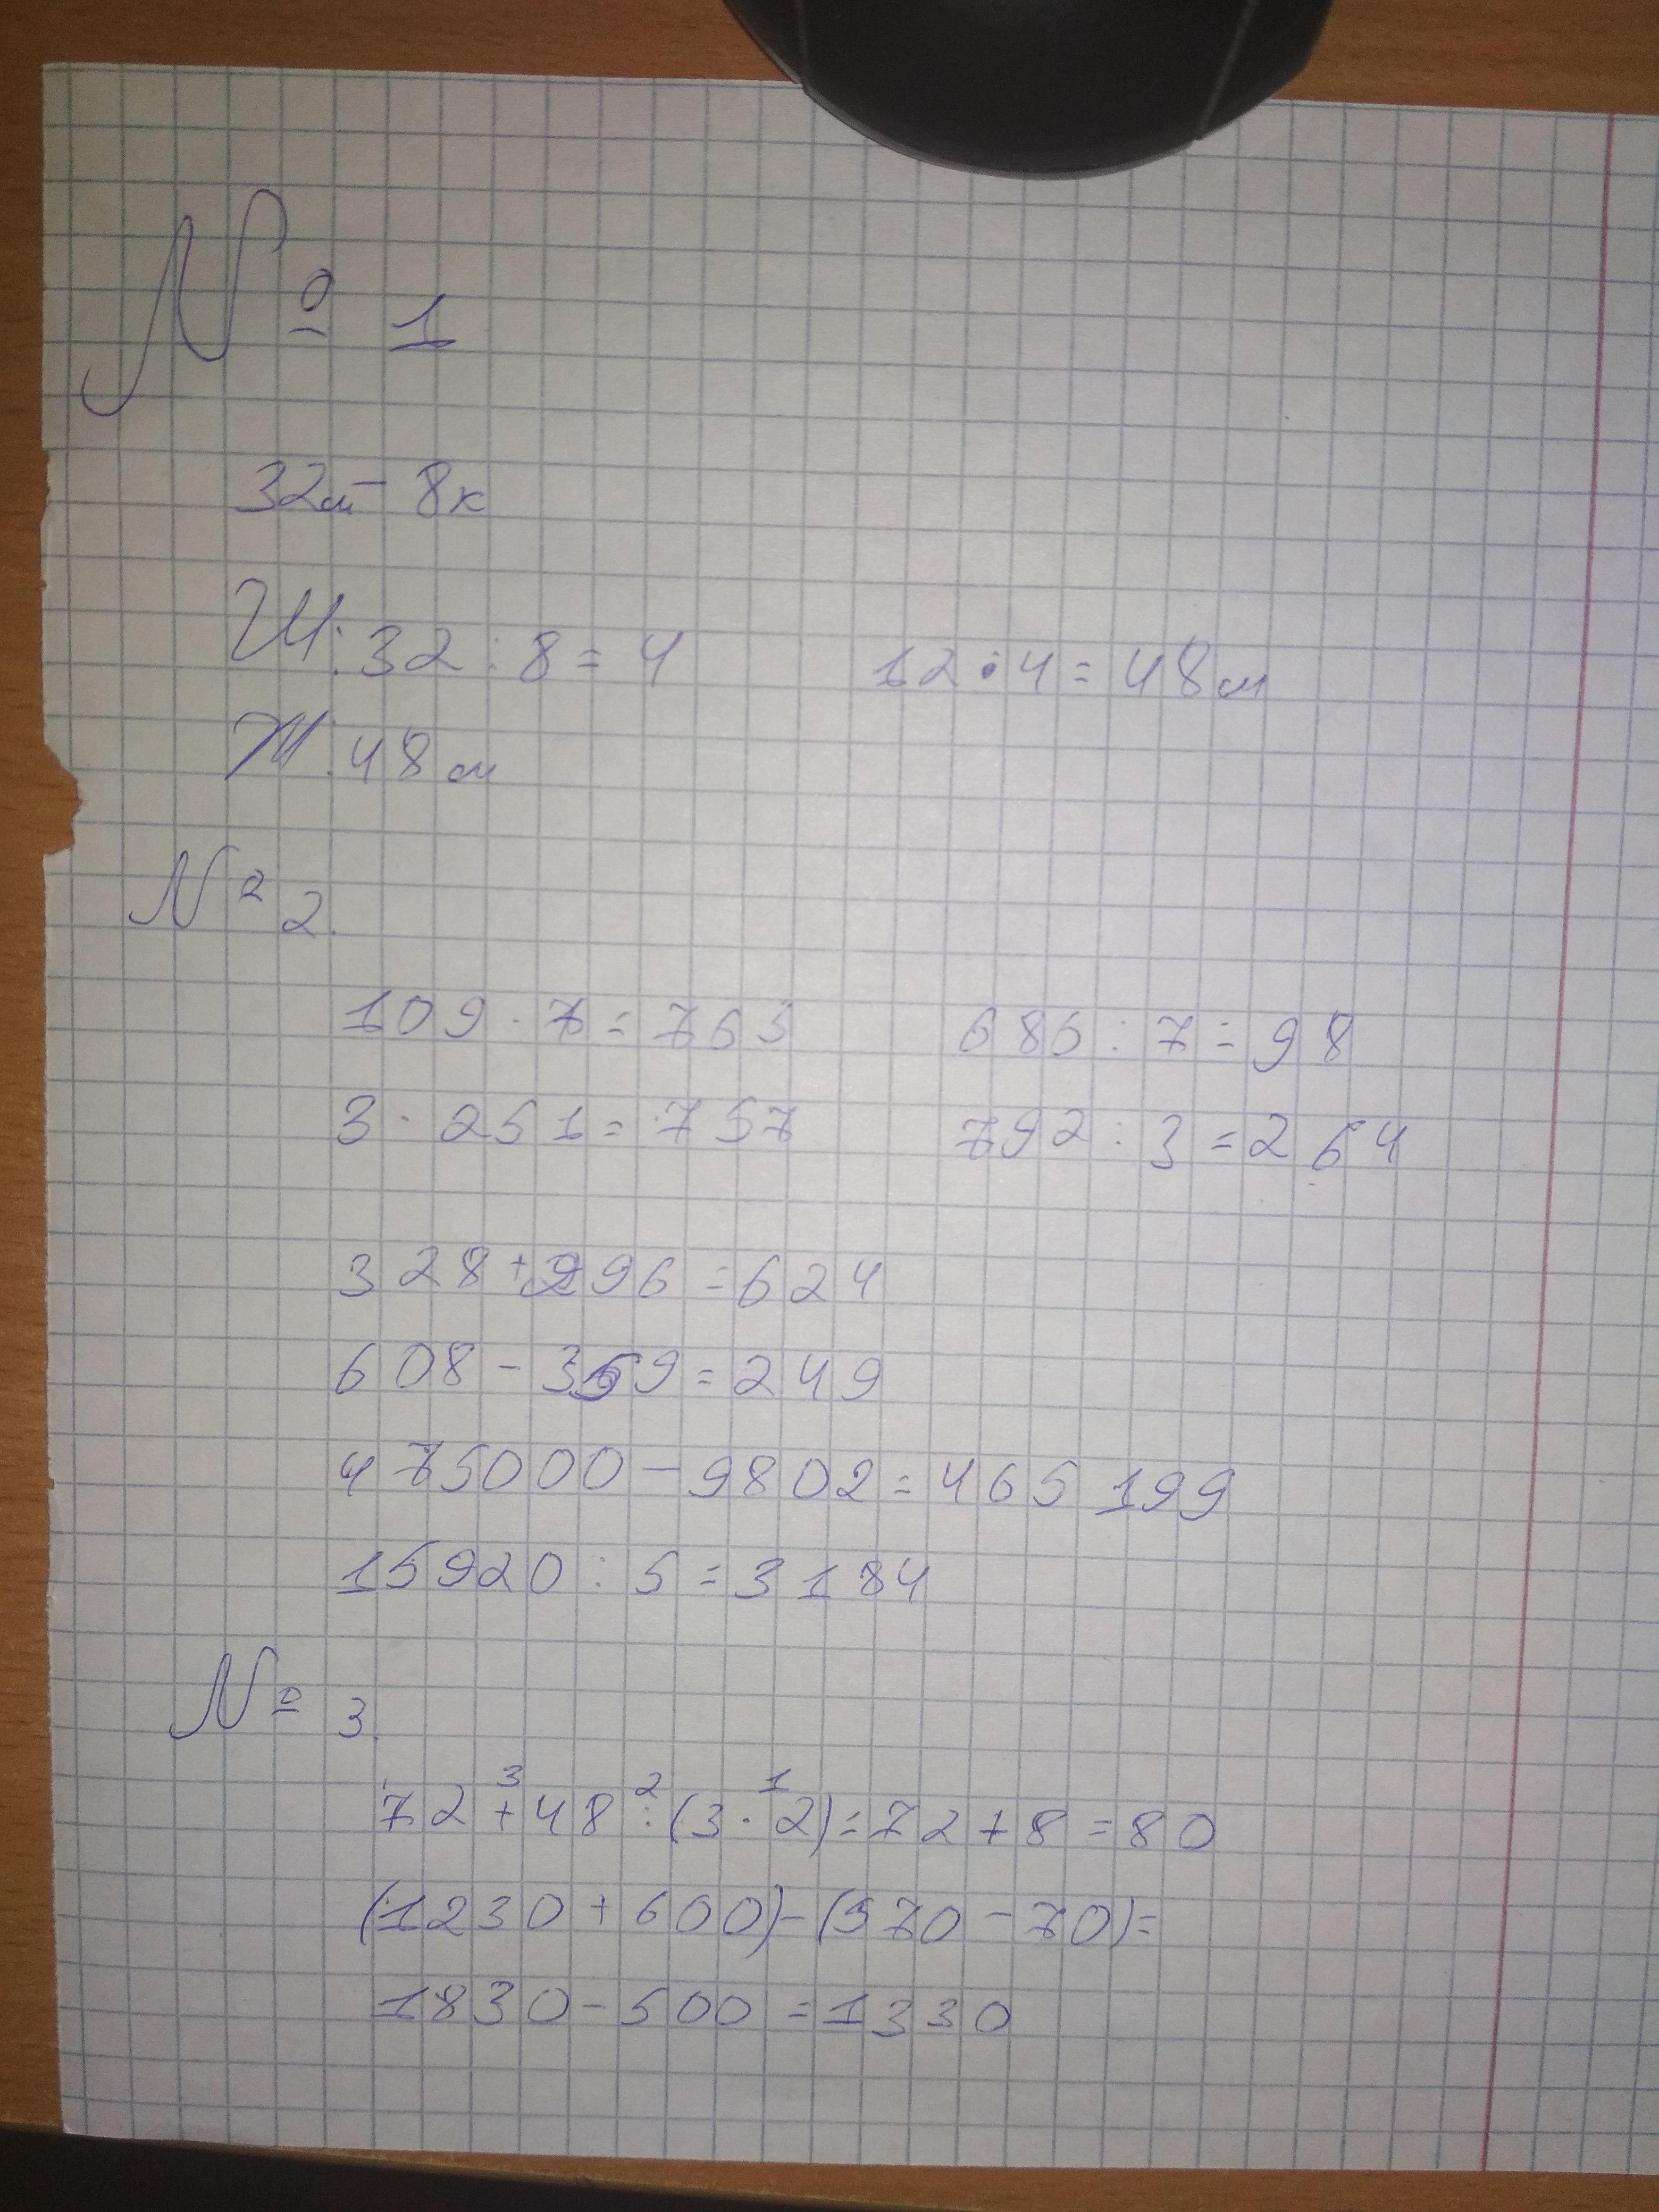 № 1
32м - 8к
Ш: 32 : 8 = 4 12 · 4 = 48м
Ж: 48 м
№ 2.
109 · 7 = 763 686 : 7 = 98
3 · 251 = 757 792 : 3 = 264
328 + 296 = 624
608 - 359 = 249
475000 - 9802 = 465 199
15920 : 5 = 3184
№ 3.
3 2 1
72 + 48 : (3 · 2) = 72 + 8 = 80
(1230 + 600) - (570 - 70) =
1830 - 500 = 1330